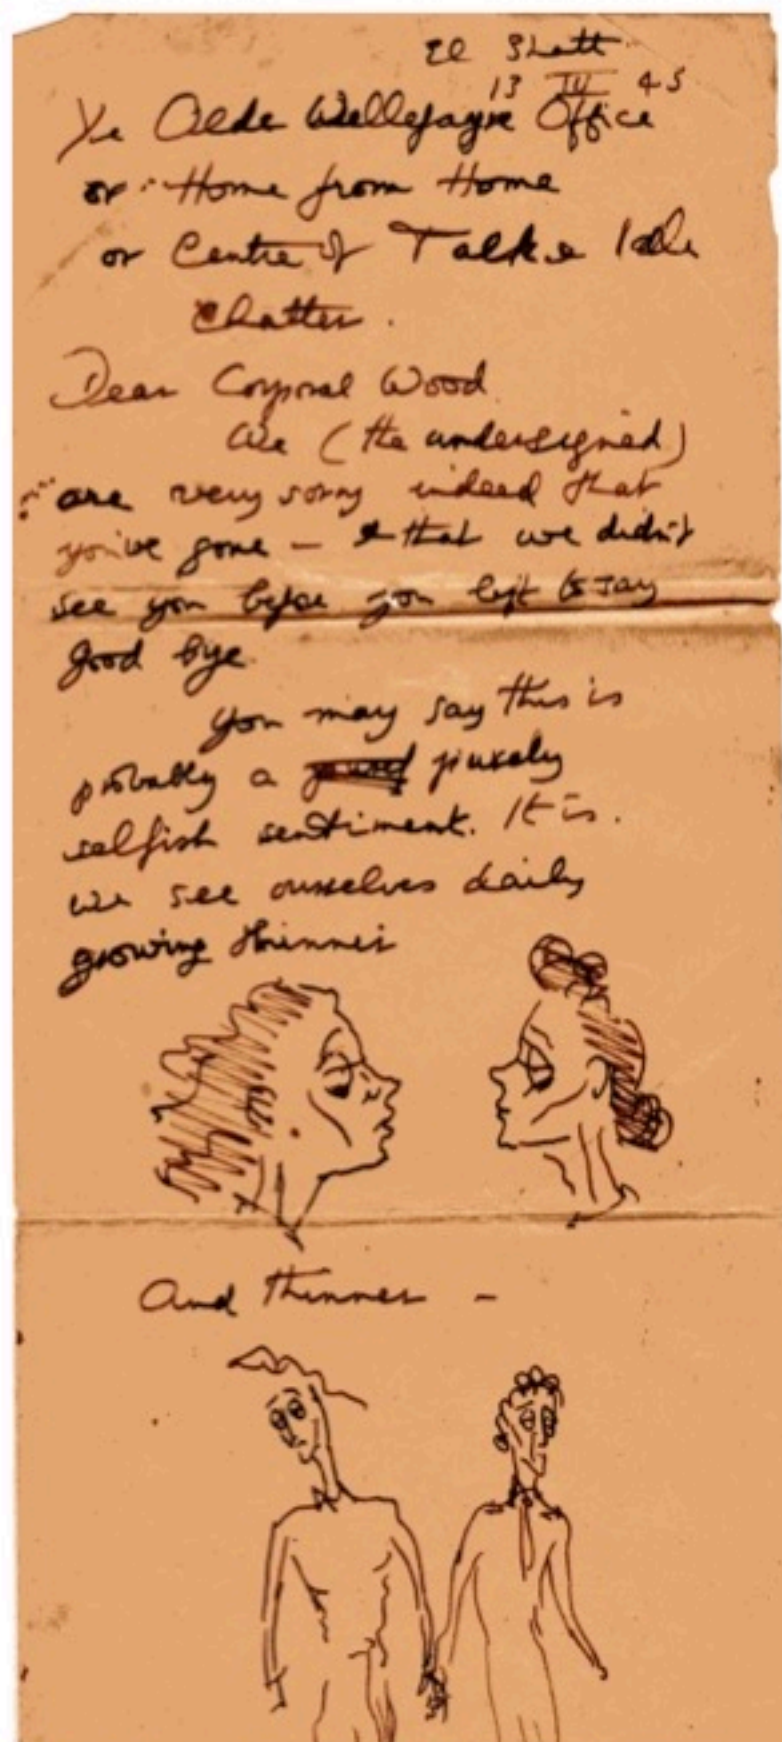 El Shatt
13 IV 45
Ye Olde Wellefayre Office
or Home from Home
or Centre of Talk & Idle
Chatter.
Dear Corporal Wood
We (the undersigned)
are very sorry indeed that
you've gone – & that we didn't
see you before you left to say
good bye.
You may say this is
probably a purely
selfish sentiment. It is.
We see ourselves daily
growing thinner
And thinner –